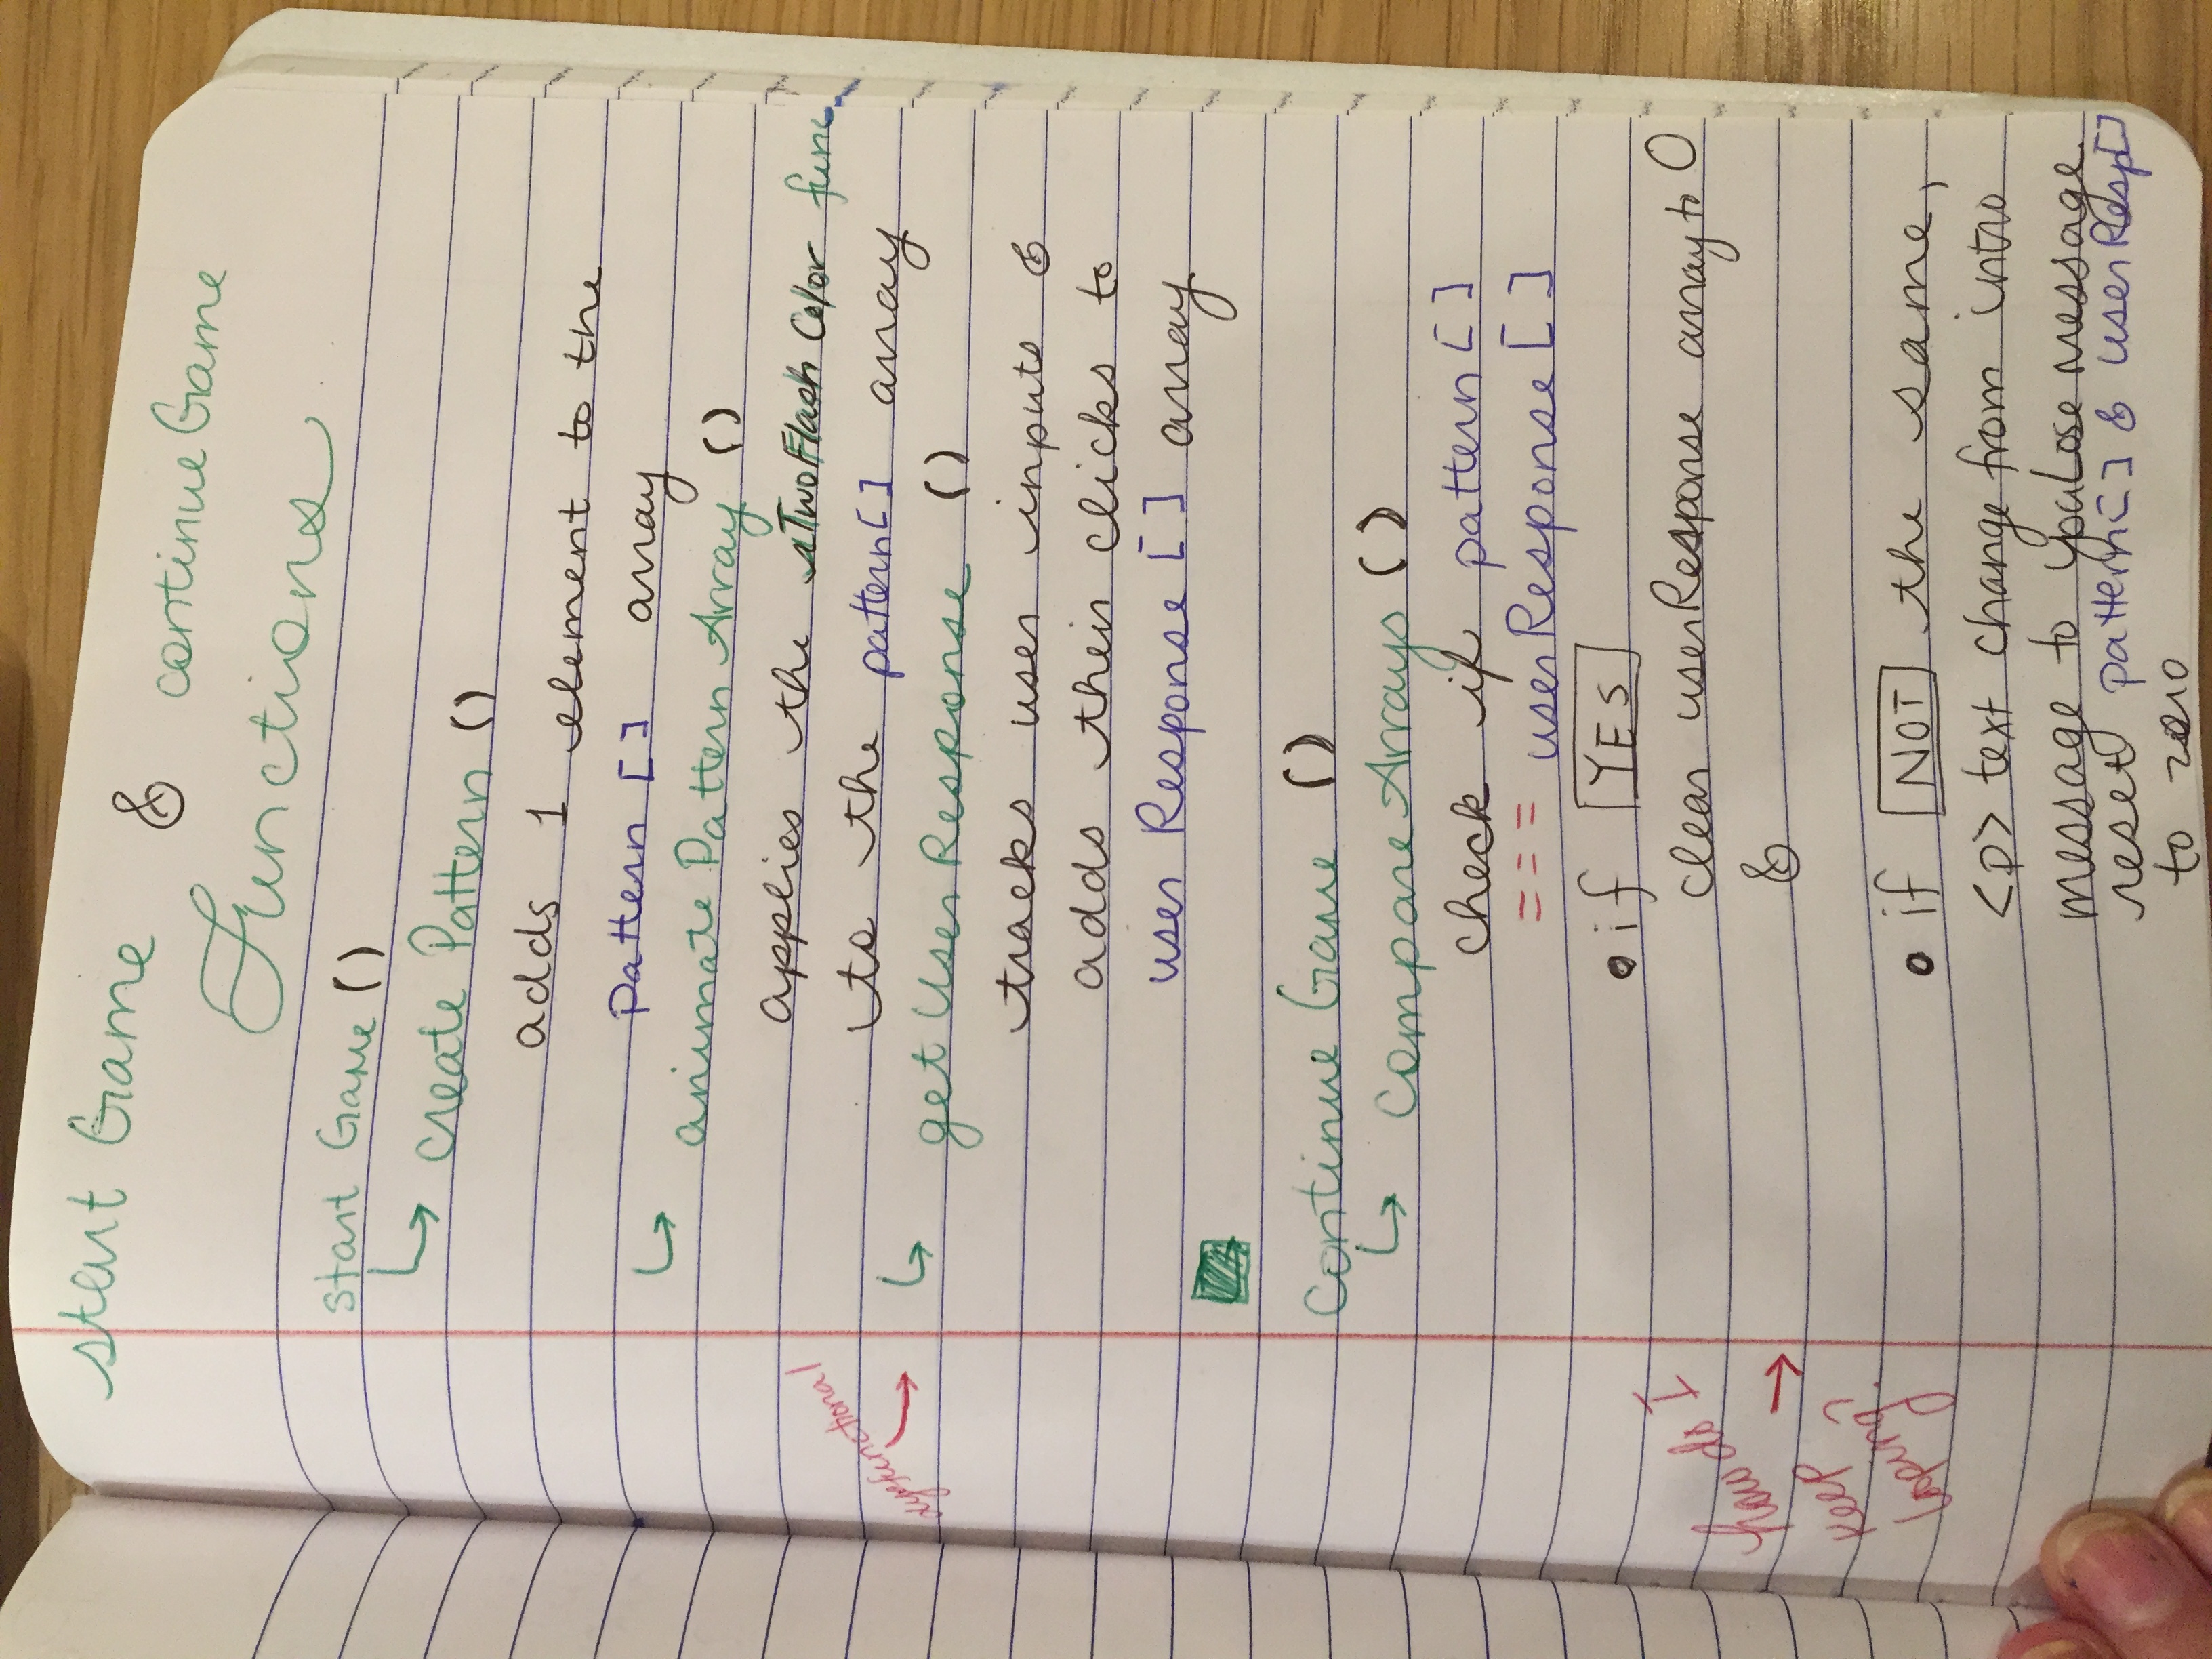 start Game & continueGame
Functions
start Game ()
↳ create Pattern ()
adds 1 element to the
pattern [] array
↳ animate Pattern Array ()
applies the sTwoFlash Color func
to the pattern[] array
dysfunctional →
↳ get User Response ()
tracks user inputs &
adds their clicks to
user Response [] array
Continue Game ()
↳ Compare Arrays ()
check if pattern []
=== userResponse []
• if YES
clear userResponse array to 0
&
how do I
keep →
looping?
• if NOT the same,
<p> text change from intro
message to youLose message
reset pattern[] & userResp[]
to zero